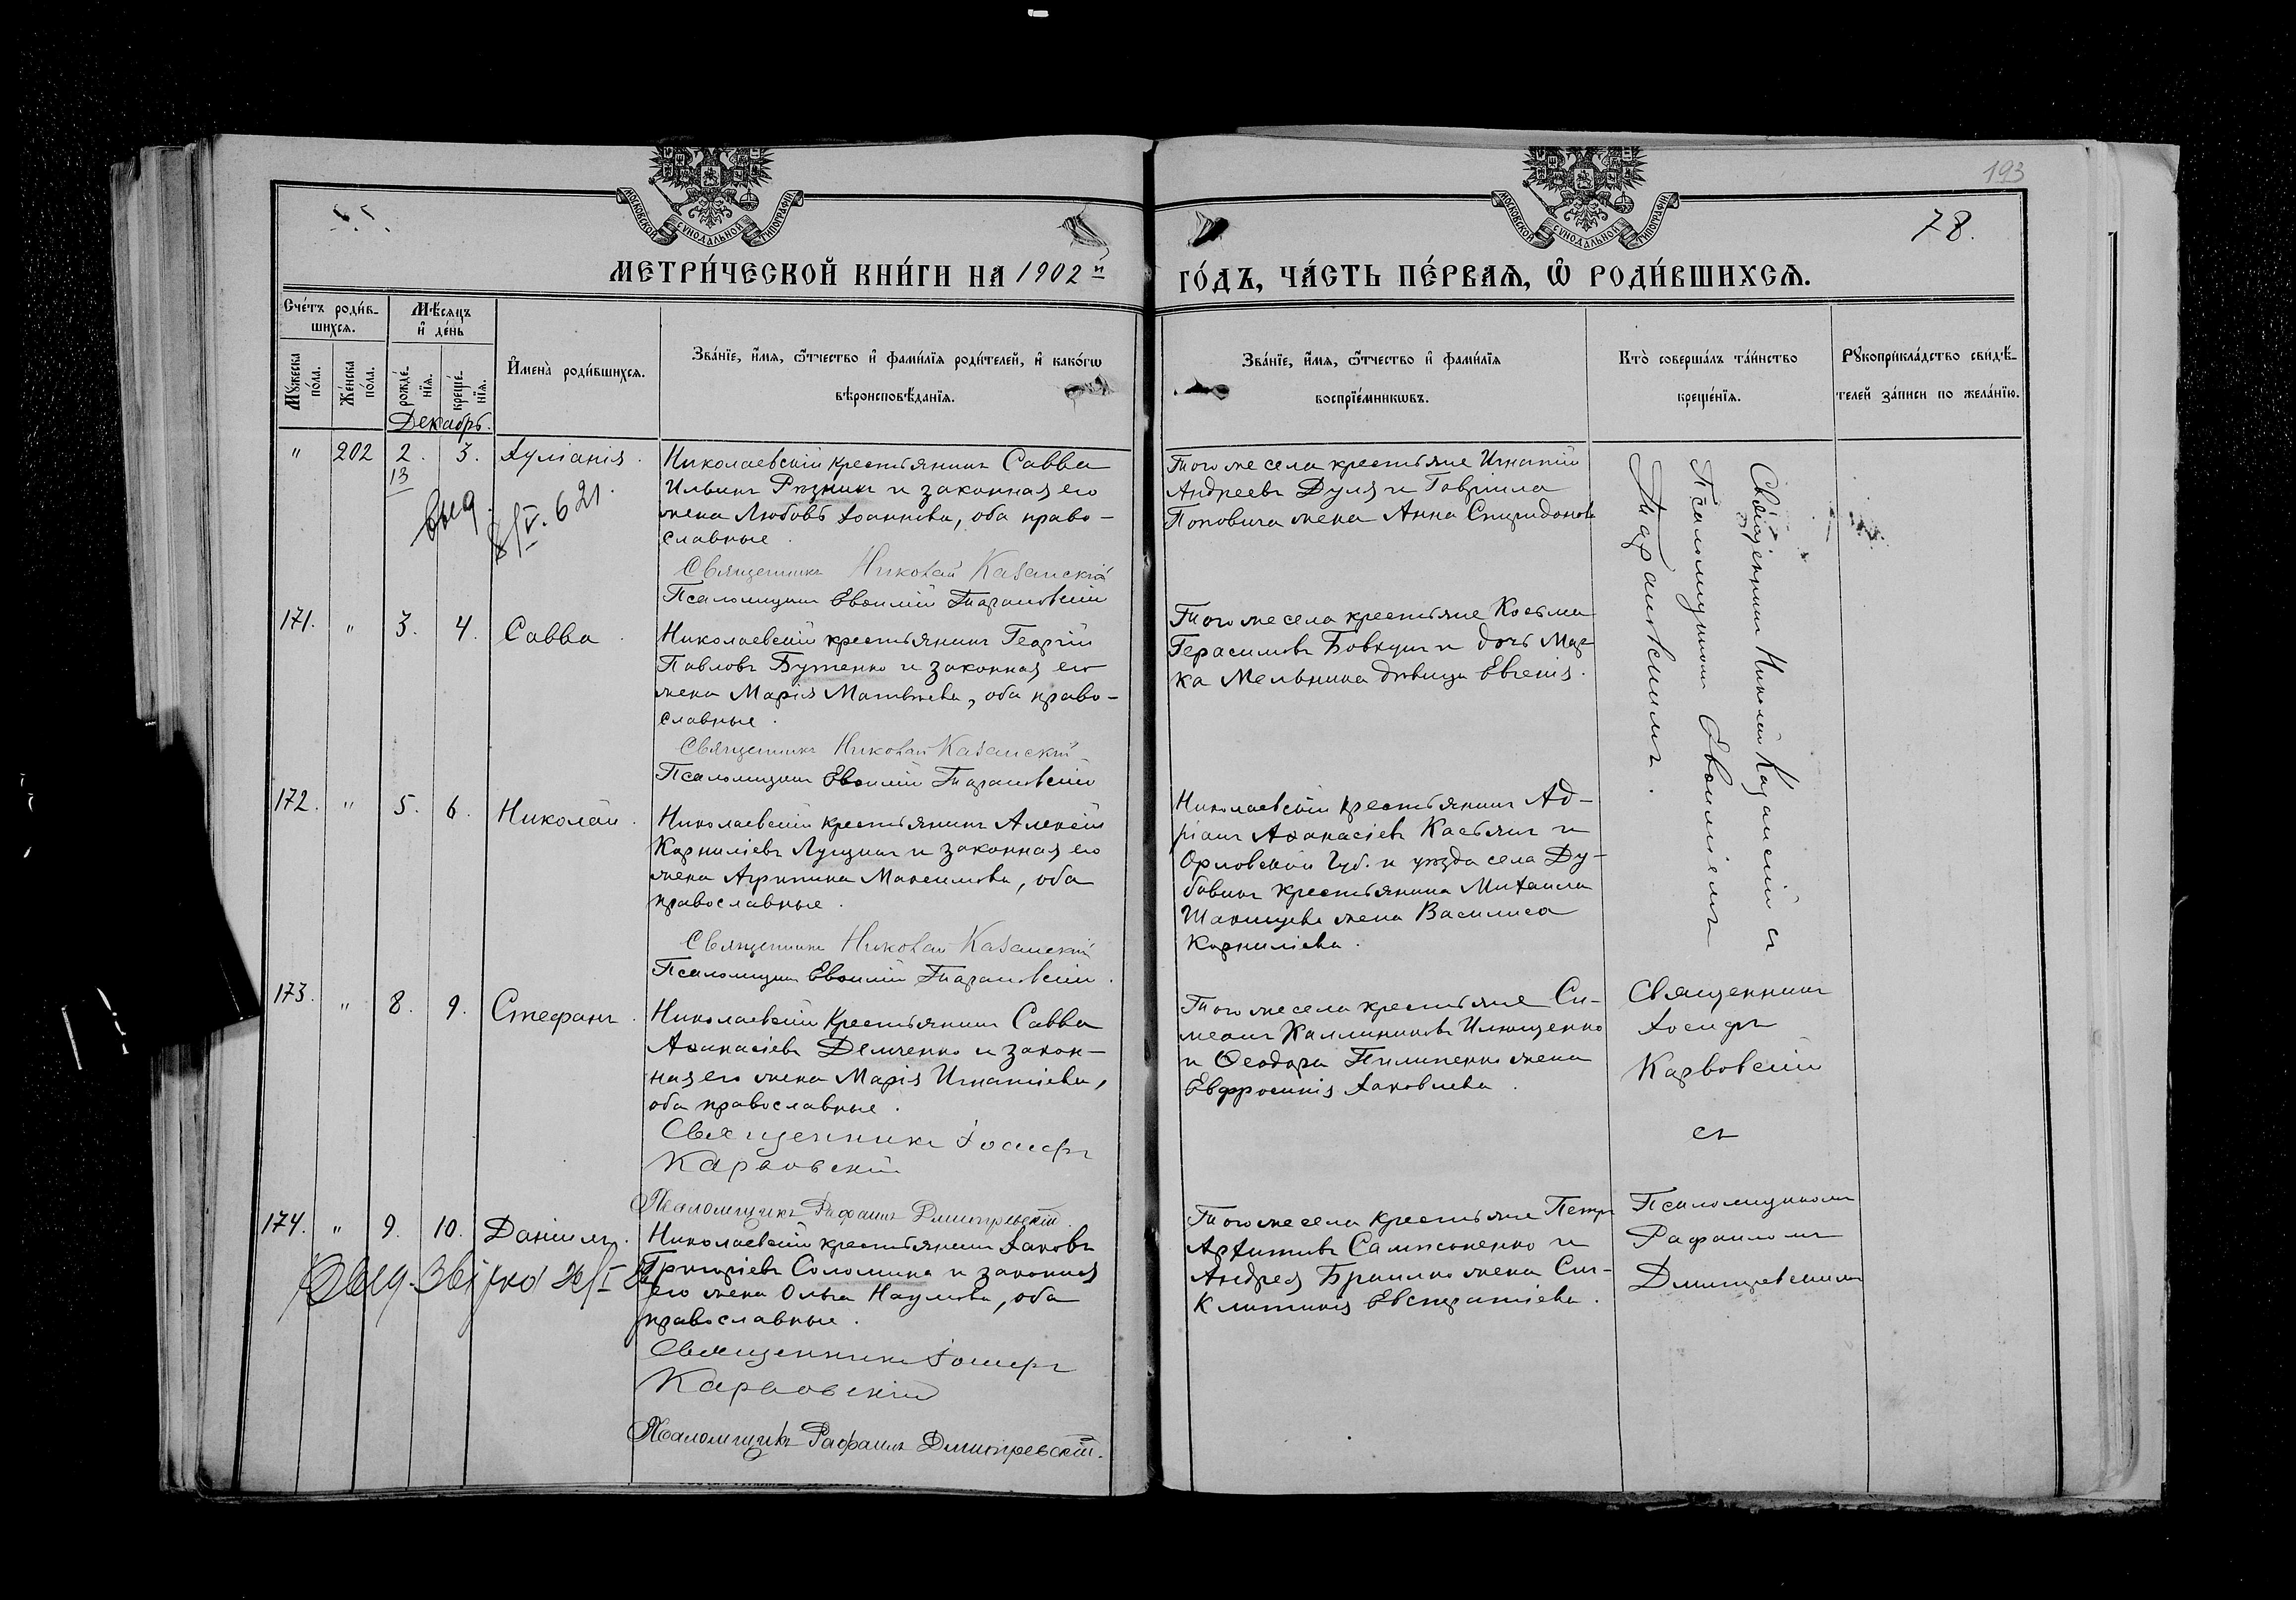 193
78.
МОСКОВСКОЙ СѴНОДАЛЬНОЙ ТИПОГРАФІИ
МОСКОВСКОЙ СѴНОДАЛЬНОЙ ТИПОГРАФІИ
МЕТРИ́ЧЕСКОЙ КНИ́ГИ НА 1902 й ГО́ДЪ, ЧА́СТЬ ПЕ́РВАѦ, Ѿ РОДИ́ВШИХСѦ.
Сче́тъ роди́в-
шихсѧ.
Мѣ́сѧцъ
и҆ де́нь
Мꙋ́жеска по́ла.
Же́нска по́ла.
рожде́-
нїѧ.
креще́-
нїѧ.
И҆мена̀ роди́вшихсѧ.
Зва́нїе, и҆́мѧ, ѻ҆́тчество и҆ фами́лїѧ роди́телей, и҆ како́гѡ
вѣроисповѣ́данїѧ.
Зва́нїе, и҆́мѧ, ѻ҆́тчество и҆ фами́лїѧ
воспрїе́мникѡвъ.
Кто̀ соверша́лъ та́инство
креще́нїѧ.
Рꙋкоприкла́дство свидѣ́-
телей за́писи по жела́нїю.
Декабрь.
" 202 2. 3. Іуліанія.
13
выд. 621.
Николаевскій крестьянинъ Савва
Ильинъ Рѣзникъ и законная его
жена Любовь Іоаннова, оба право-
славные.
Священникъ Николай Казанскій
Псаломщикъ Евѳимій Тарановскій
Того же села крестьяне Игнатій
Андреевъ Дуля и Гавріила
Поповича жена Анна Спиридонова
Священникъ Николай Казанскій съ
Псаломщикомъ Евѳиміемъ
Тарановскимъ.
171. " 3. 4. Савва.
Николаевскій крестьянинъ Георгій
Павловъ Бутенко и законная его
жена Марія Матвѣева, оба право-
славные.
Священникъ Николай Казанскій
Псаломщикъ Евѳимій Тарановскій
Того же села крестьяне Косьма
Герасимовъ Бовкунъ и дочь Мар-
ка Мельника дѣвица Евгенія.
172. " 5. 6. Николай.
Николаевскій крестьянинъ Алексій
Корниліевъ Лущикъ и законная его
жена Агрипина Максимова, оба
православные.
Священникъ Николай Казанскій
Псаломщикъ Евѳимій Тарановскій.
Николаевскій крестьянинъ Ад-
ріанъ Аѳанасіевъ Касьянъ и
Орловской губ. и уѣзда села Ду-
бовики крестьянина Михаила
жена Василиса
Корниліева.
173. " 8. 9. Стефанъ.
Николаевскій крестьянинъ Савва
Аѳанасіевъ Демченко и закон-
ная его жена Марія Игнатіева,
оба православные.
Священникъ Іосифъ
Карвовскій
Псаломщикъ Рафаилъ Дмитревскій.
Того же села крестьяне Си-
меонъ Каллиниковъ Илющенко
и Ѳеодора Пилипенко жена
Евфросинія Іаковлева.
Священникъ
Іосифъ
Карвовскій
съ
Псаломщикомъ
Рафаиломъ
Дмитревскимъ
174. " 9. 10. Даніилъ.
Выд.
Николаевскій крестьянинъ Іаковъ
Григоріевъ Соломина и законная
его жена Ольга Наумова, оба
православные.
Священникъ Іосифъ
Карвовскій
Псаломщикъ Рафаилъ Дмитревскій.
Того же села крестьяне Петръ
Архиповъ Сампсоненко и
Андрея Браилко жена Син-
клитикія Евстратіева.